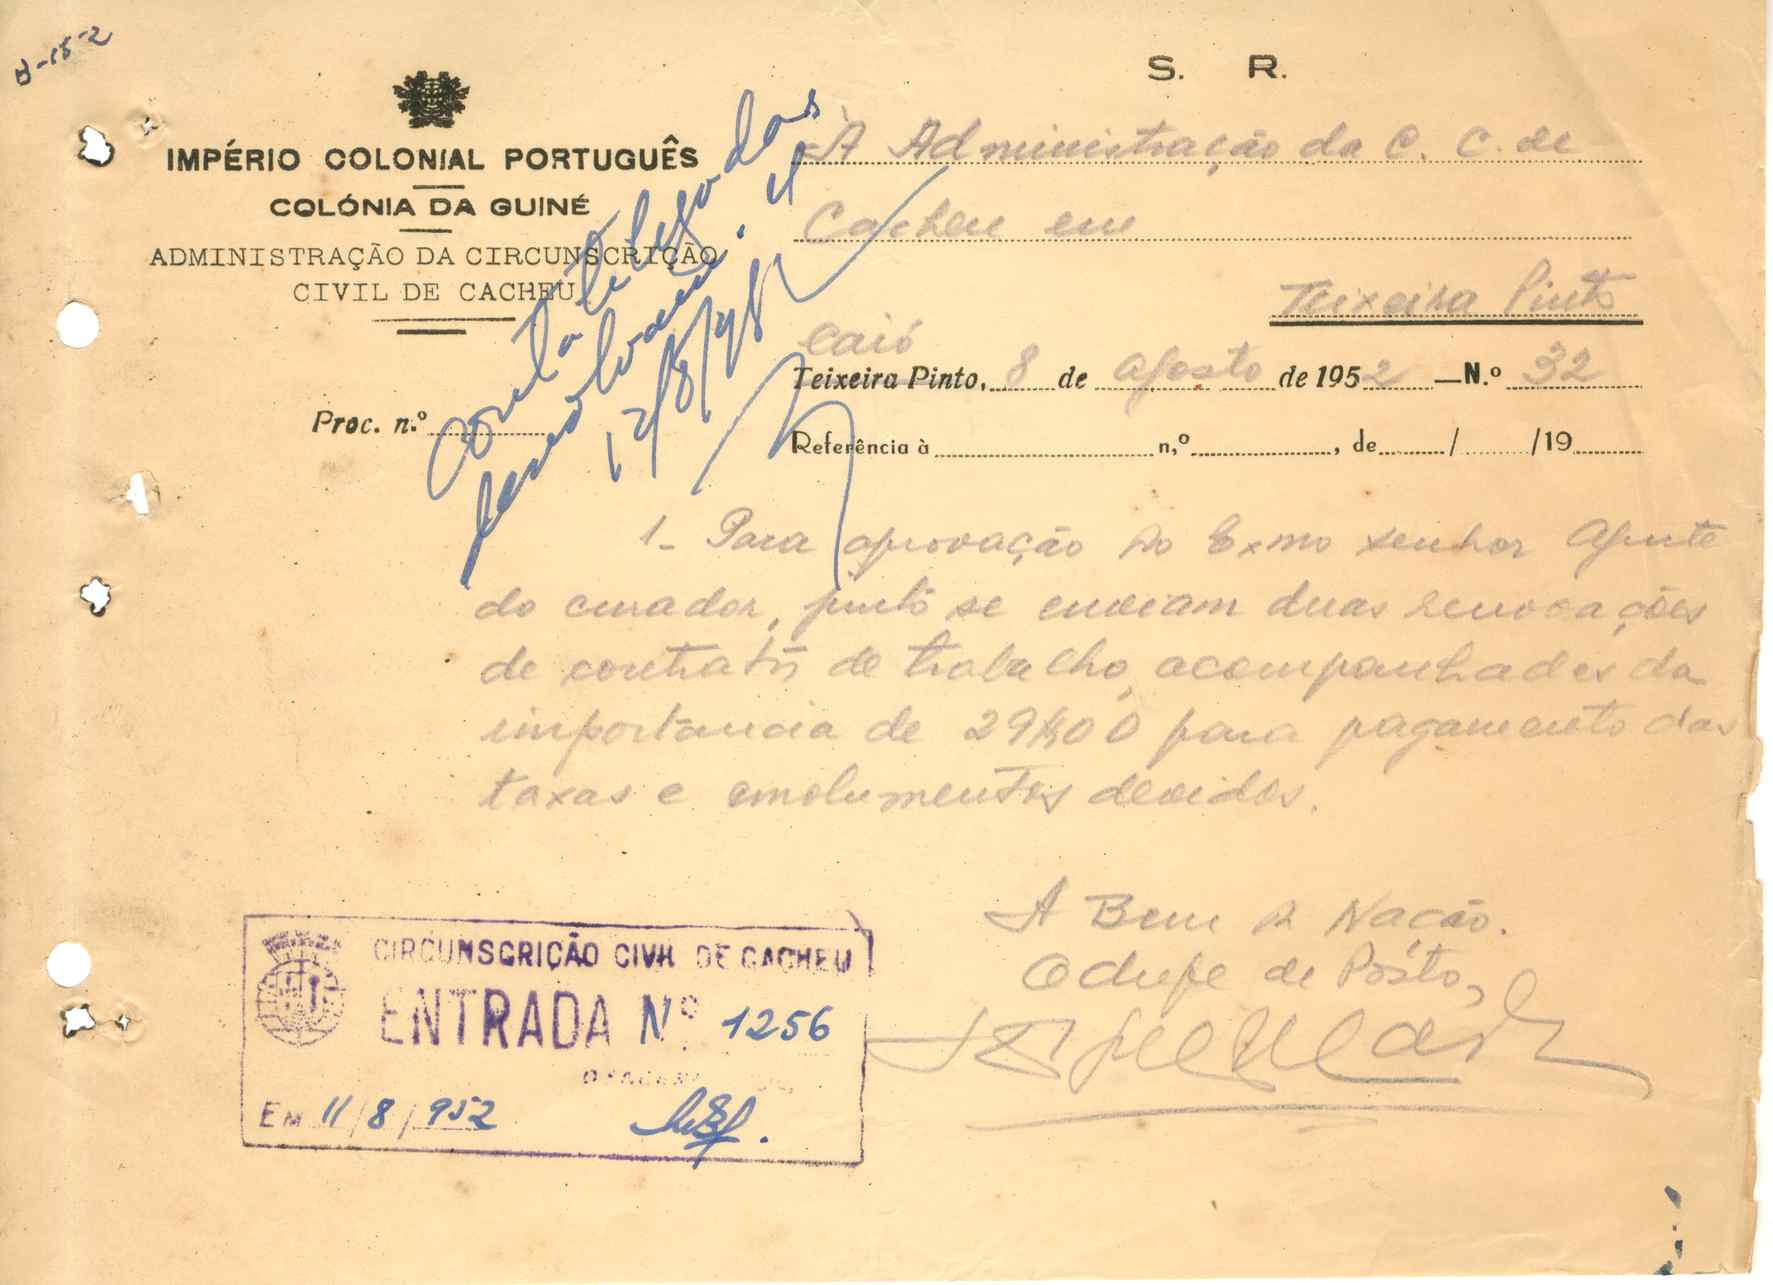 B-15-2
S. R.
IMPÉRIO COLONIAL PORTUGUÊS
COLÓNIA DA GUINÉ
ADMINISTRAÇÃO DA CIRCUNSCRIÇÃO
CIVIL DE CACHEU
À Administração da C. C. de
Cacheu em
Teixeira Pinto
Caió
Teixeira Pinto, 8 de Agosto de 1952 —N.º 32
Proc. n.º
Referência à n,º , de / /19
12/8/952
1- Para aprovação do Exmo senhor Agente
do curador, junto se enviam duas renovações
de contratos de trabalho, acompanhados da
importância de 29$00 para pagamento das
taxas e emolumentos devidos.
A Bem da Nação.
O chefe de Pôsto,
CIRCUNSCRIÇÃO CIVIL DE CACHEU
ENTRADA Nº 1256
EM 11/8/952